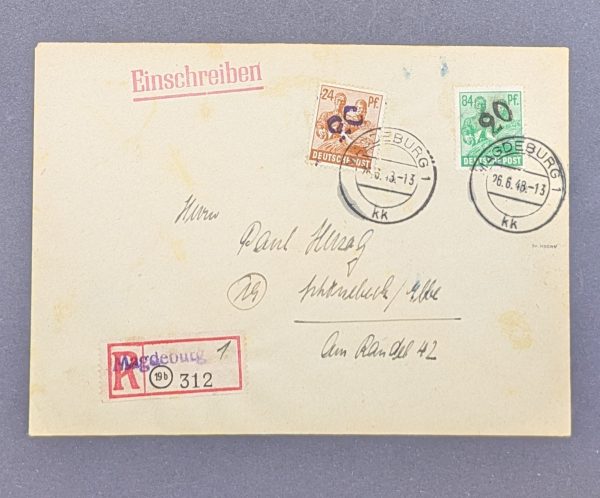 Einschreiben
24 Pf.
DEUTSCHE POST
84 Pf.
20
DEUTSCHE POST
MAGDEBURG 1
26.6.48.-13
kk
MAGDEBURG 1
26.6.48.-13
kk
Herrn
Paul Herzog
Schönebeck/Elbe
Am Randel 42
R
Magdeburg 1
19b
312